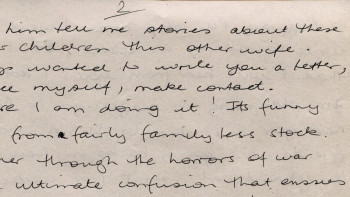 2
him tell me stories about these
children this other wife.
wanted to write you a letter,
myself, make contact.
I am doing it! Its funny
from a fairly family less stock.
through the horrors of war
ultimate confusion that ensues